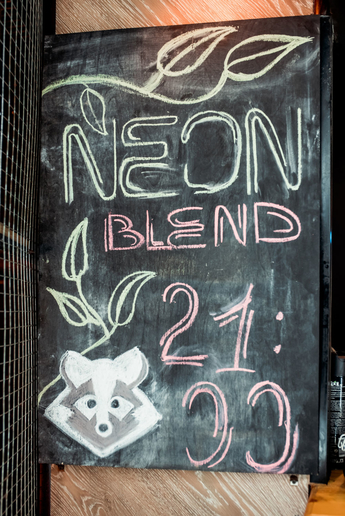 NEON
BLEND
21:
00